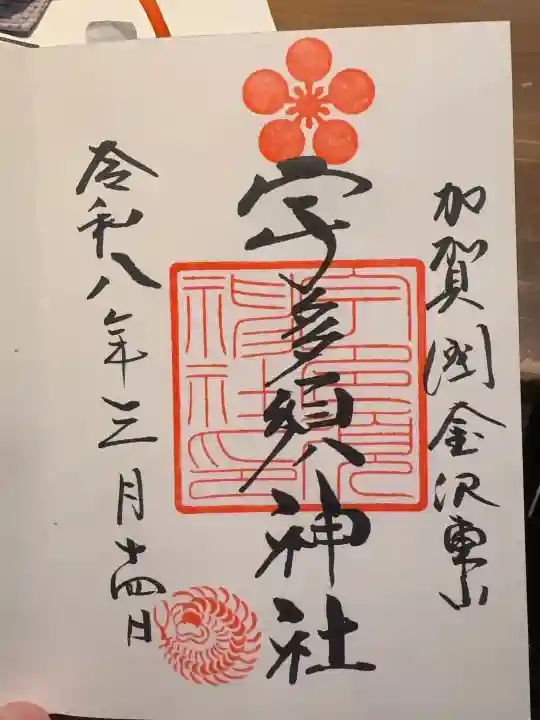 加賀國金沢東山
宇多須神社
令和八年三月十四日